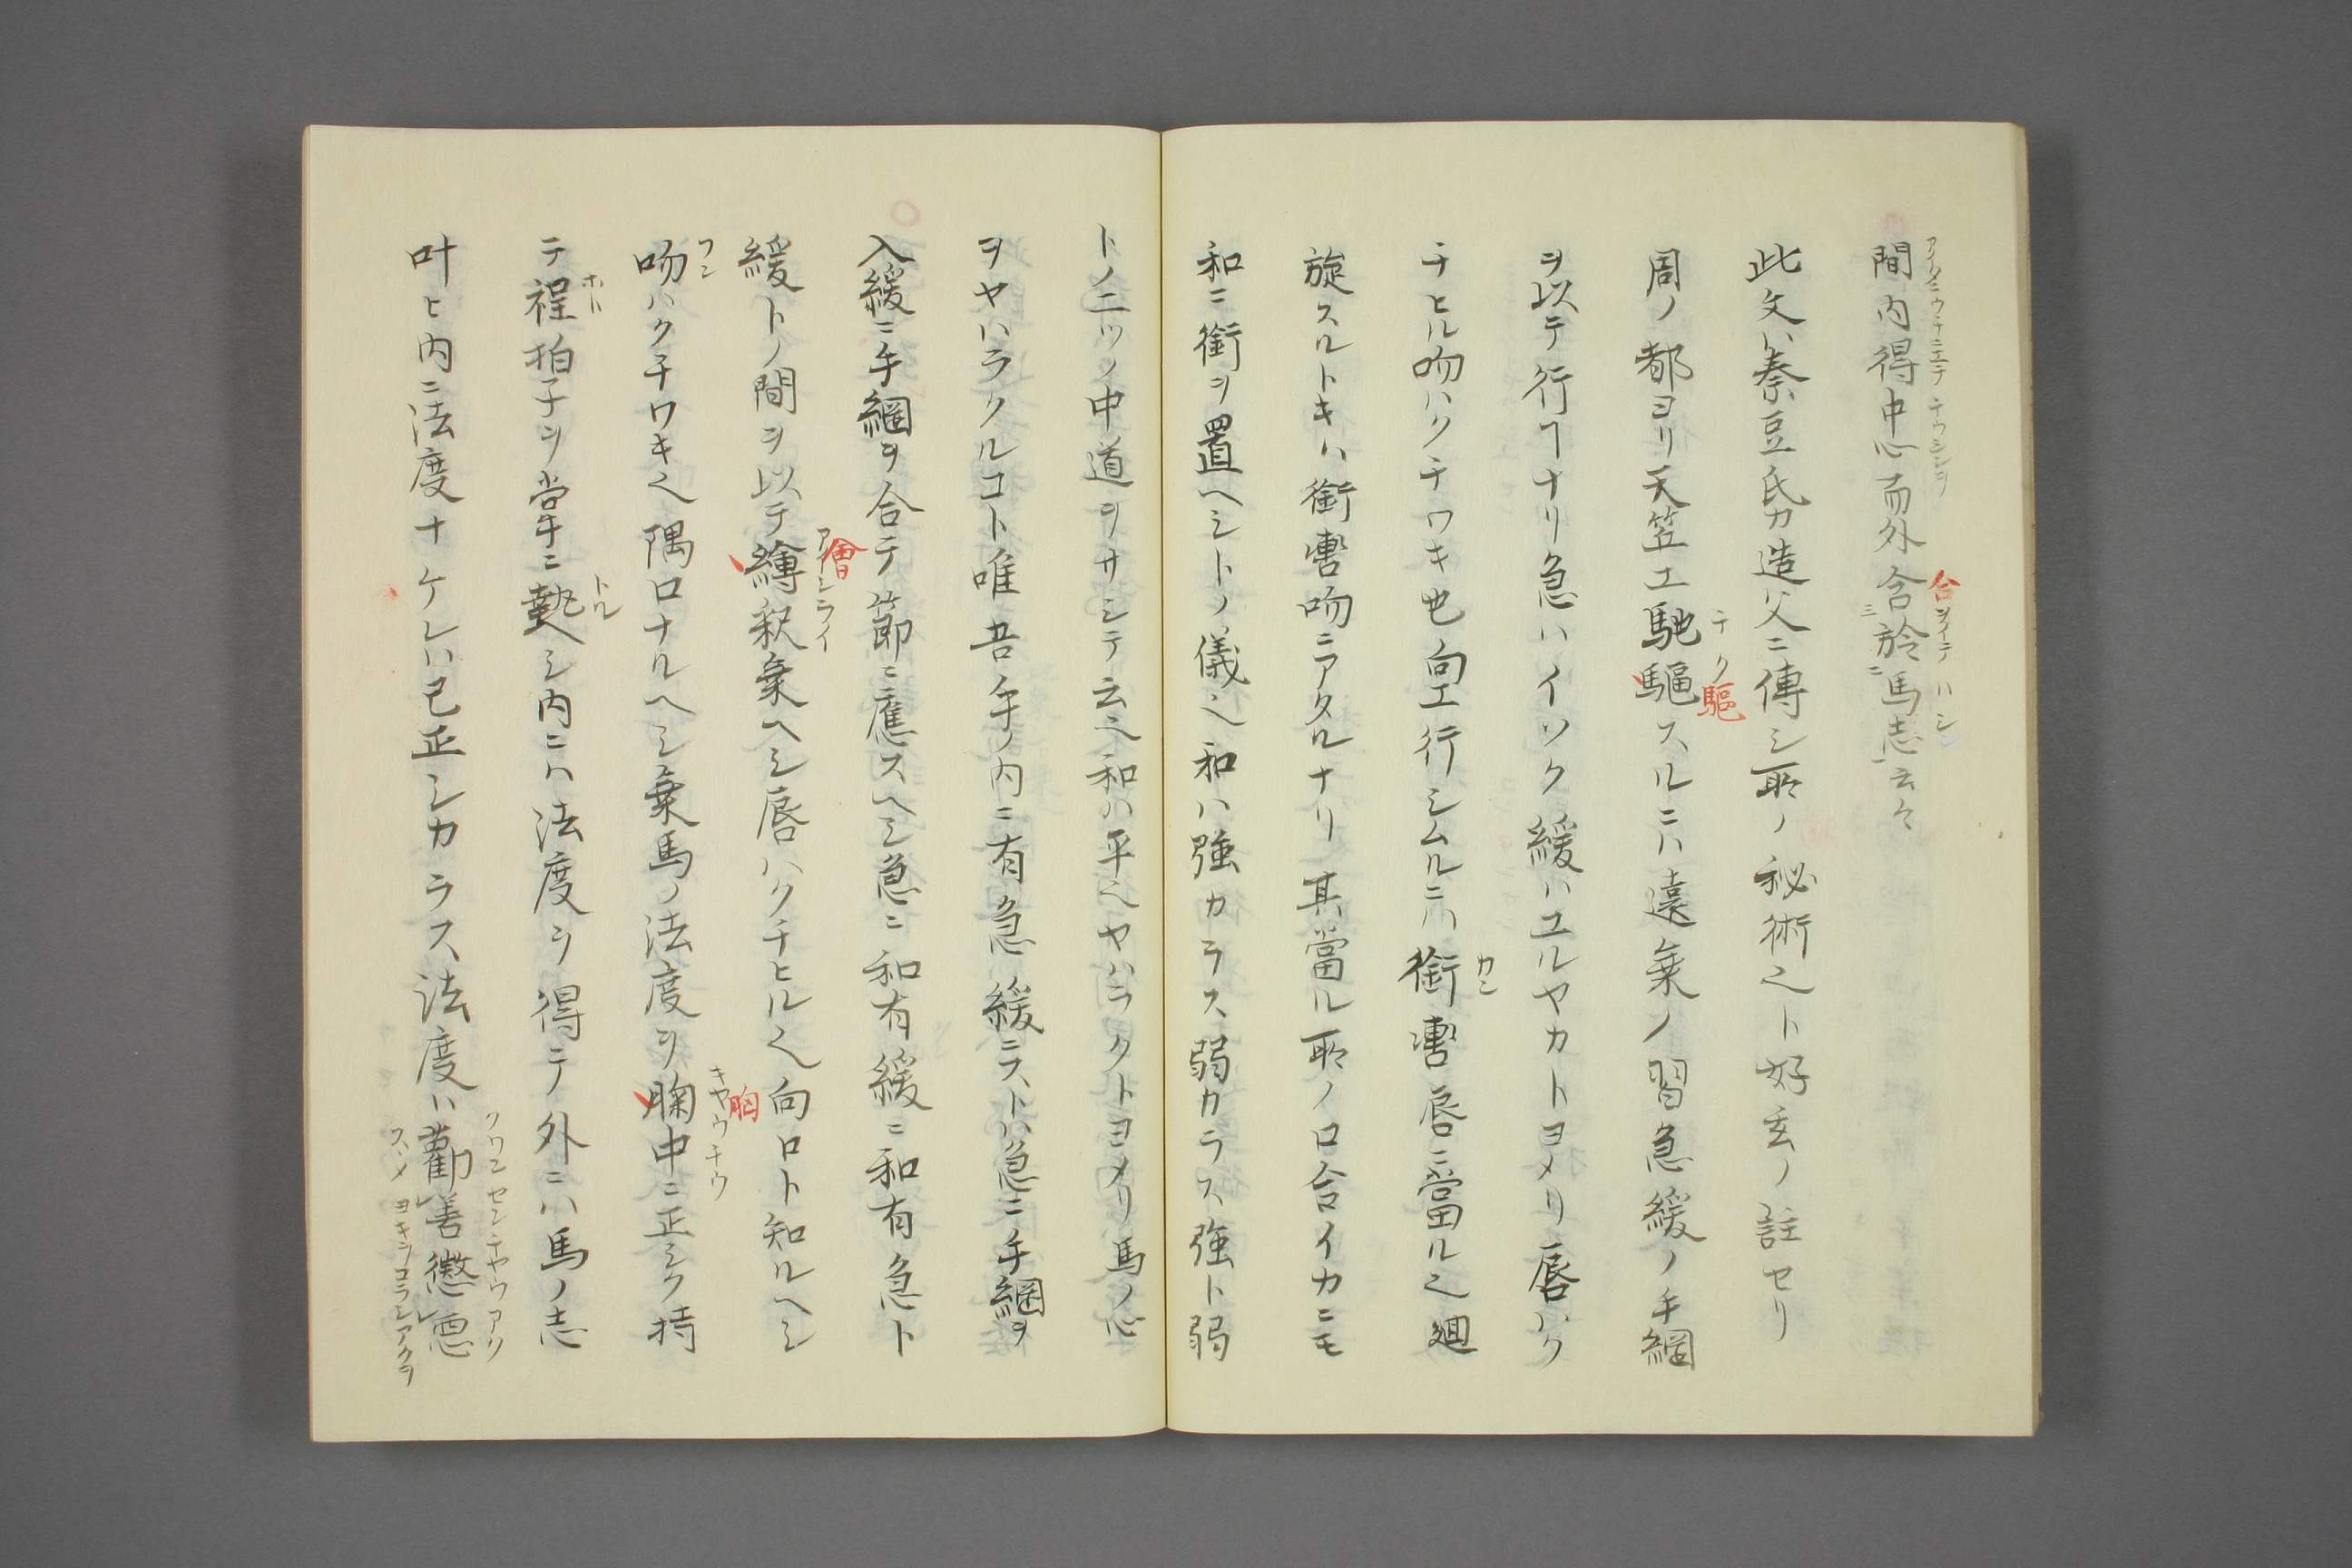 間内得中心而外合於馬志云々
此文ハ泰豆氏カ造父ニ傳シ取ノ秘術也ト好玄ノ註セリ
周ノ都ヨリ天笠エ馳驅スルニハ遠乗ノ習急緩ノ手綱
ヲ以テ行フナリ急ハイソク緩ハユルヤカトヨメリ唇ハク
チヒル吻ハクチワキ也向エ行シムルニハ銜轡唇ニ當ル也廻
旋スルトキハ銜轡吻ニアタルナリ其當ル取ノ口合イカニモ
和ニ銜ヲ置ヘシトノ儀也和ハ強カラス弱カラス強ト弱
トノ二ツノ中道ヲサシテ云也和ハ平也ヤハラクトヨメリ馬ノ心
ヲヤハラクルコト唯吾手ノ内ニ有急緩ニストハ急ニ手綱ヲ
入緩ニ手綱ヲ合テ節ニ應スヘシ急ニ和有緩ニ和有急ト
緩トノ間ヲ以テ繪釈乗ヘシ唇ハクチヒル也向口ト知ルヘシ
吻ハクチワキ也隅口ナルヘシ乗馬ノ法度ヲ胸中ニ正シク持
テ程拍子ヲ掌ニ執シ内ニハ法度ヲ得テ外ニハ馬ノ志
叶ヒ内ニ法度ナケレハ已正シカラス法度ハ勸善懲悪